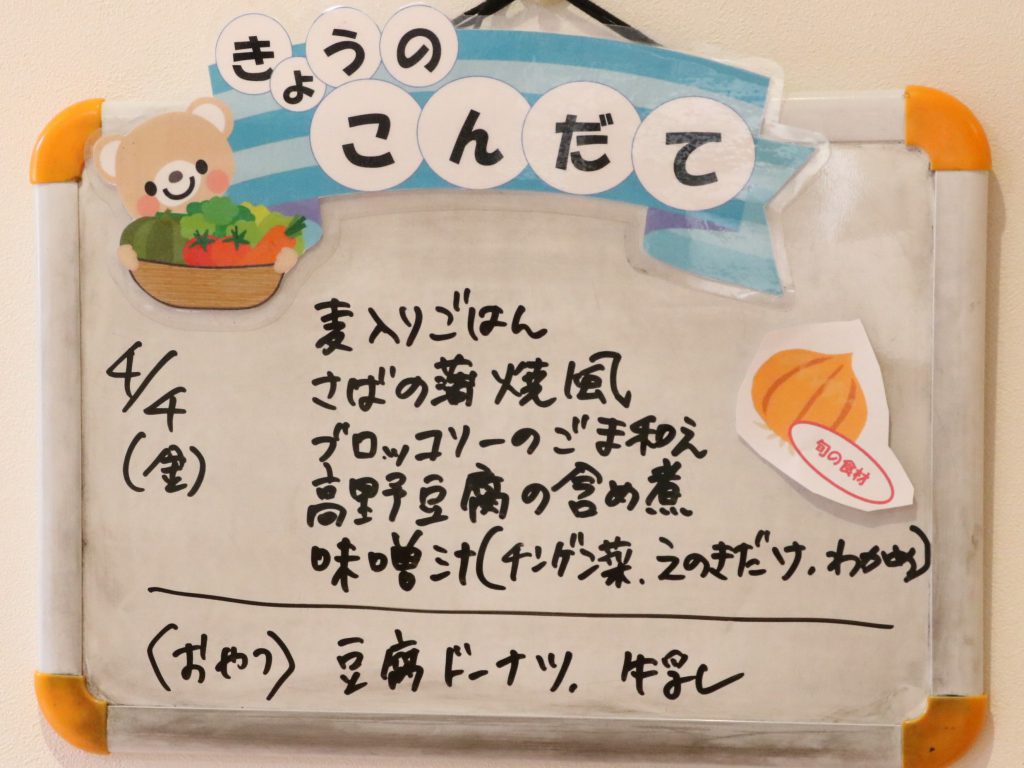 きょうの
こんだて
4/4
(金)
麦入りごはん
さばの蒲焼風
ブロッコリーのごま和え
高野豆腐の含め煮
味噌汁(チンゲン菜、えのきだけ、わかめ)
旬の食材
〈おやつ〉 豆腐ドーナツ、牛乳